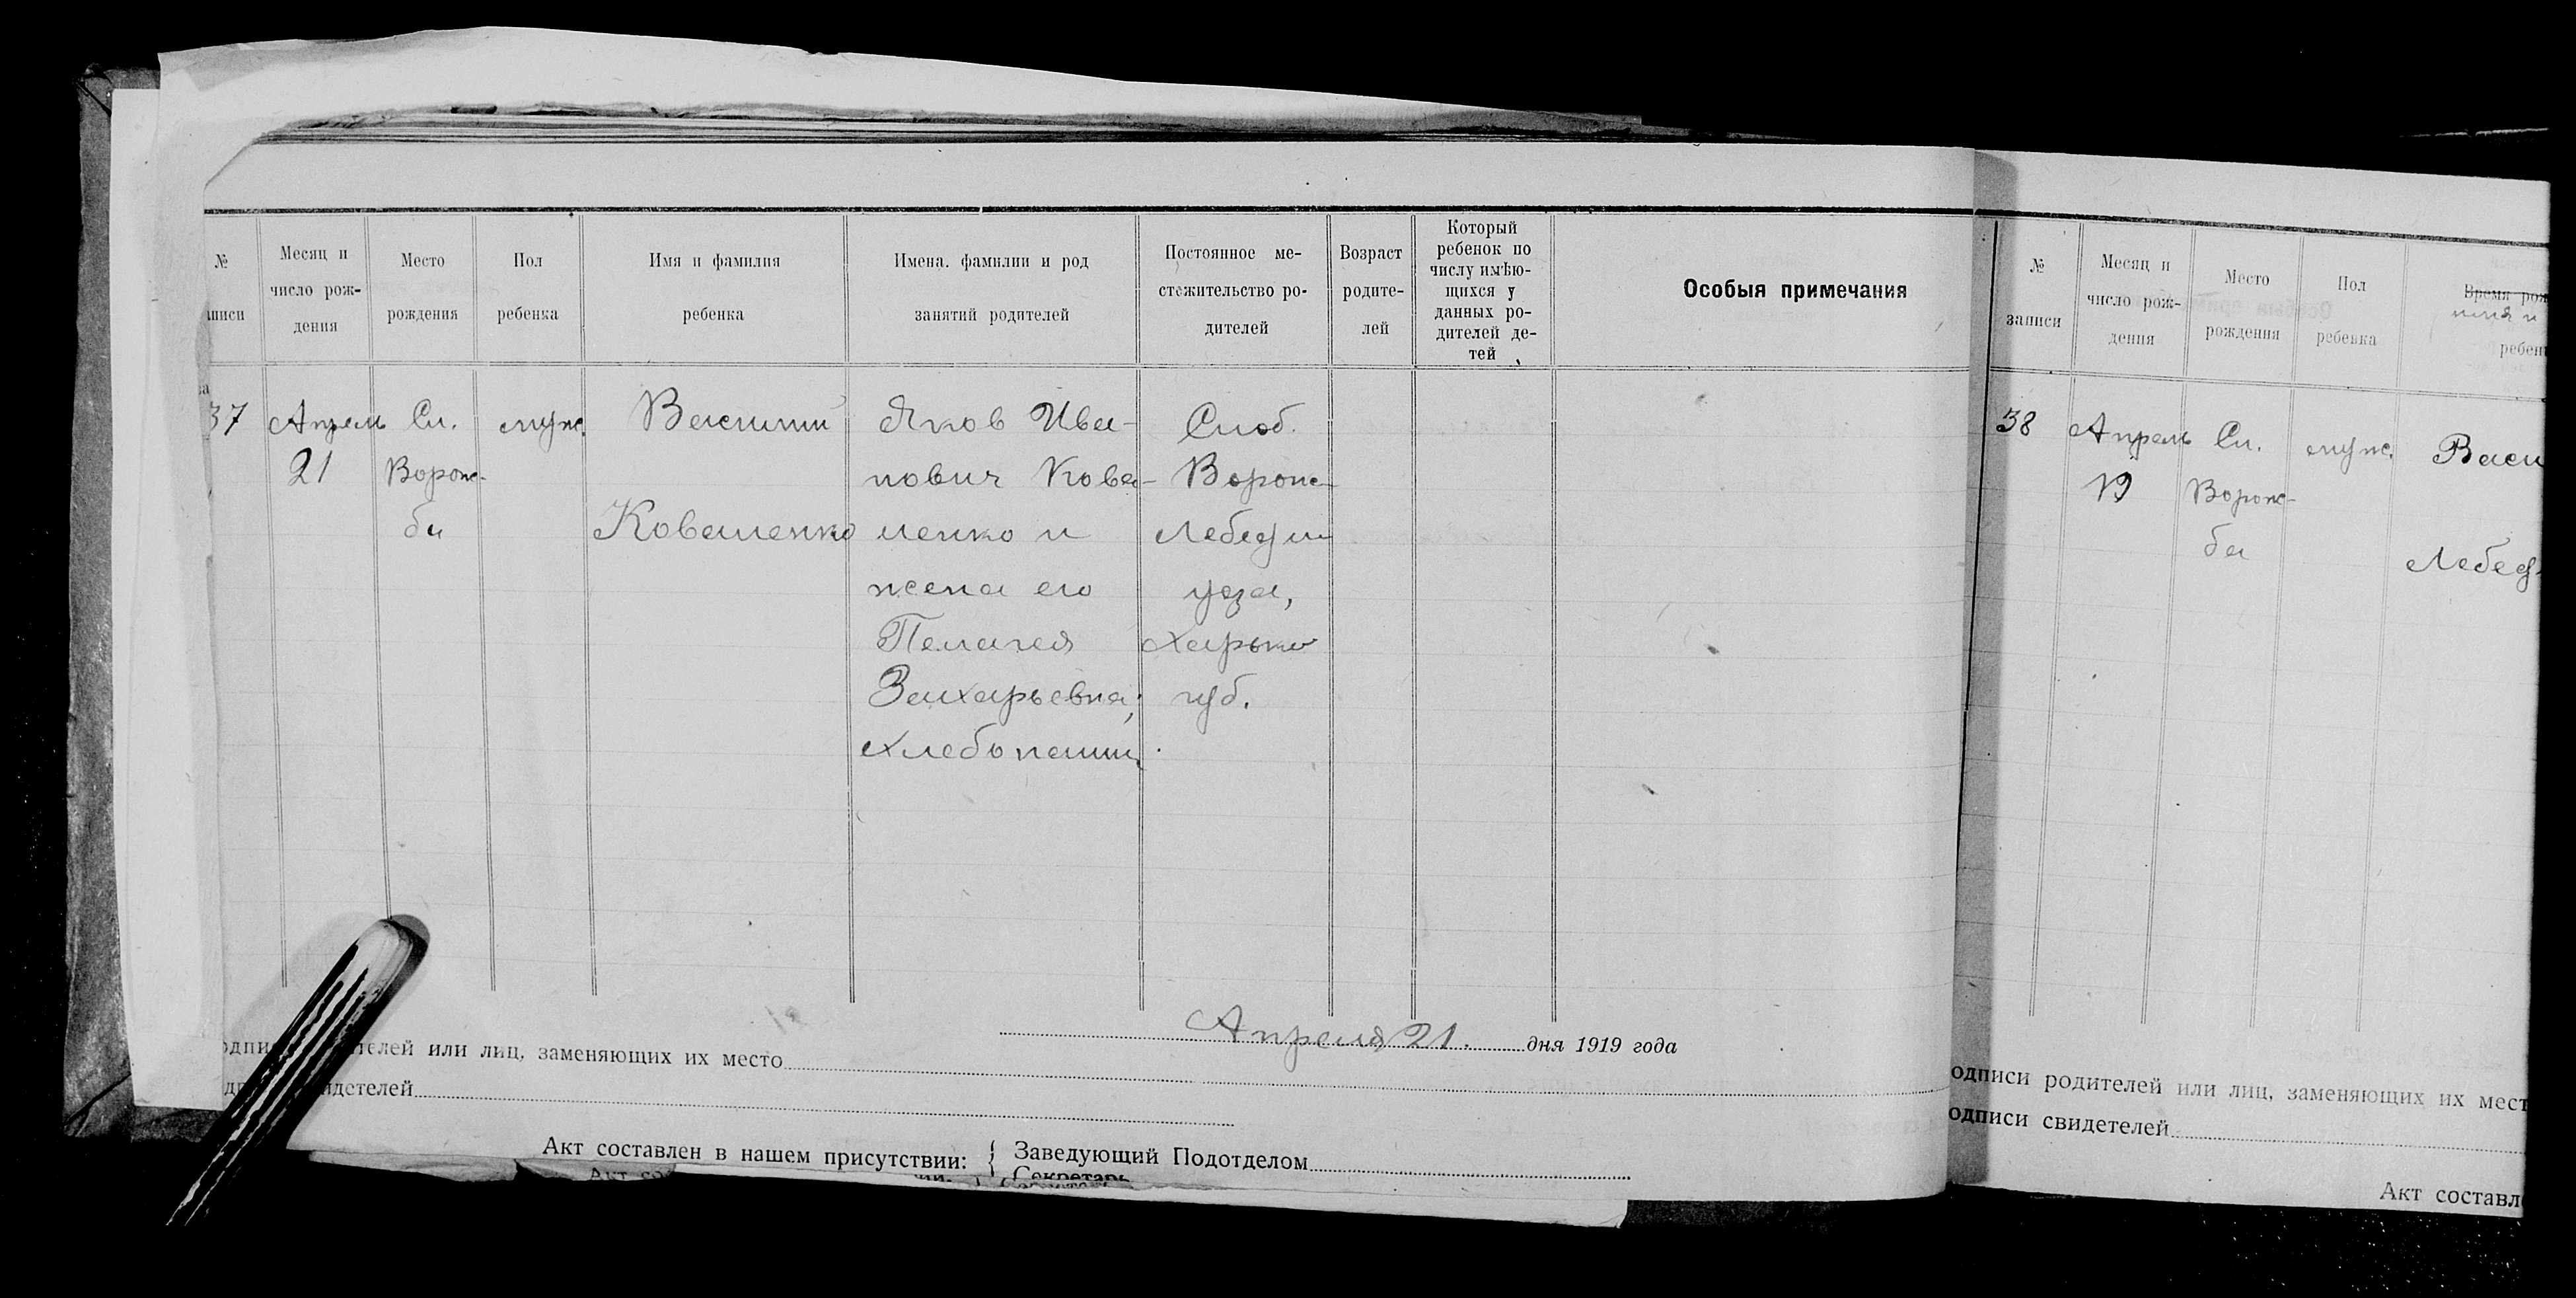 №
иписи
Месяц и
число рож-
дения
Место
рождения
Пол
ребенка
Имя и фамилия
ребенка
Имена. фамилии и род
занятий родителей
Постоянное ме-
стожительство ро-
дителей
Возраст
родите-
лей
Который
ребенок по
числу имѣю-
щихся у
данных ро-
дителей де-
тей
Особыя примечания
37
Апрель
21
Сл.
Ворож-
ба
муж.
Василий
Коваленко
Яков Ива-
нович Кова-
ленко и
жена его
Пелагея
Захарьевна;
хлебопашц.
Слоб.
Ворож
Лебедин
уезд,
Харьков
губ.
Апреля 21. дня 1919 года
одпи телей или лиц, заменяющих их место
идетелей
Акт составлен в нашем присутствии: { Заведующий Подотделом
Секретарь
№
записи
Месяц и
число рож-
дения
Место
рождения
Пол
ребенка
Время рож
имя и
ребен
38
Апрель
19
Сл.
Ворож-
ба
муж.
Васи
Лебед
одписи родителей или лиц, заменяющих их мест
одписи свидетелей
Акт составл